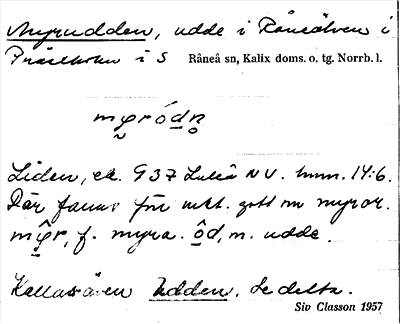 Myrudden, udde i Råneälven i
Prästholm i S Råneå sn, Kalix doms. o. tg. Norrb. l.
Liden, ek. 937 Luleå NV. hmm. 14:6.
Där fanns förr mkt. gott om myror.
f. myra. ôd, m. udde.
Kallas även Udden. Se detta.
Siv Classon 1957